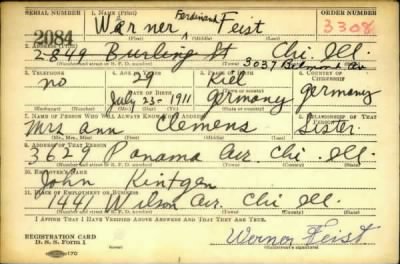 SERIAL NUMBER 1. NAME (Print) ORDER NUMBER
2084 Warner Ferdinand Feist 3308
(First) (Middle) (Last)
2. ADDRESS (Print)
2849 Burling St Chi. Ill.
3037 Belmont av
(Number and street or R. F. D. number) (Town) (County) (State)
3. TELEPHONE 4. AGE IN YEARS 5. PLACE OF BIRTH 6. COUNTRY OF CITIZENSHIP
no 29 Kiel
DATE OF BIRTH (Town or county)
July 23 - 1911 Germany Germany
(Exchange) (Number) (Mo.) (Day) (Yr.) (State or country)
7. NAME OF PERSON WHO WILL ALWAYS KNOW YOUR ADDRESS 8. RELATIONSHIP OF THAT PERSON
Mrs Ann Clemens Sister
(Mr., Mrs., Miss) (First) (Middle) (Last)
9. ADDRESS OF THAT PERSON
Panama Av. Chi. Ill.
(Number and street or R. F. D. number) (Town) (County) (State)
10. EMPLOYER'S NAME
John Kintgen
11. PLACE OF EMPLOYMENT OR BUSINESS
1441 Wilson Av. Chi Ill.
(Number and street or R. F. D. number) (Town) (County) (State)
I AFFIRM THAT I HAVE VERIFIED ABOVE ANSWERS AND THAT THEY ARE TRUE.
REGISTRATION CARD
D. S. S. Form 1
Werner Feist
(Registrant's signature)